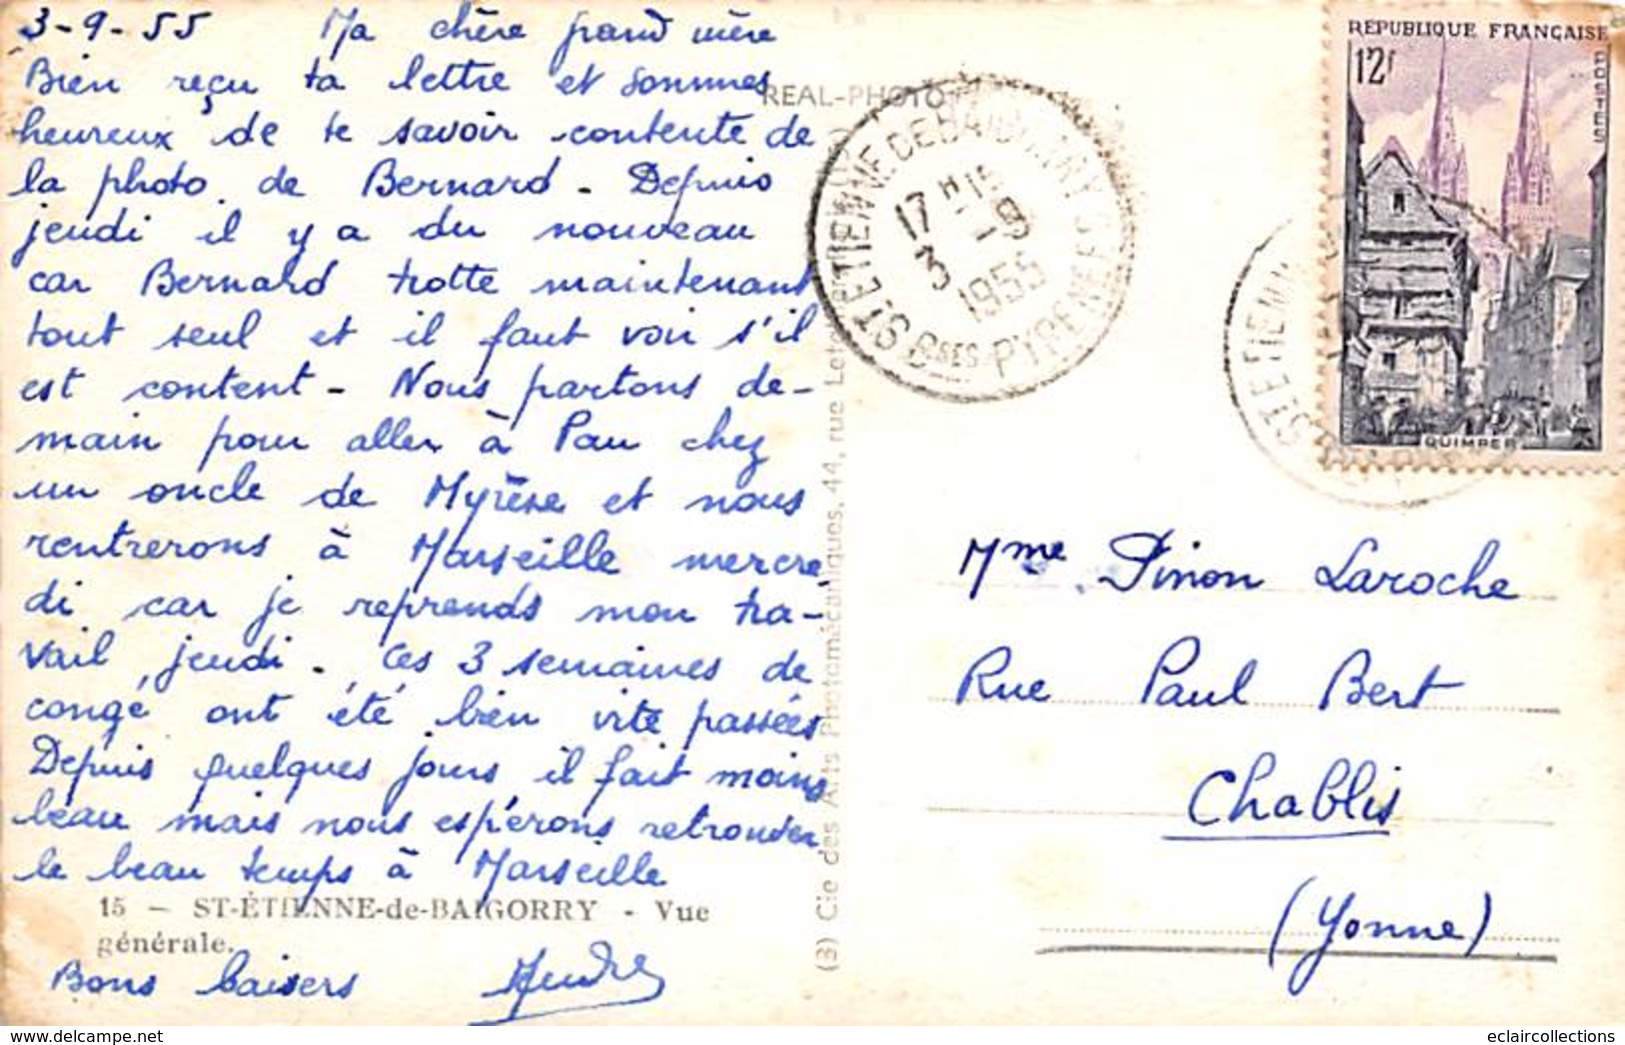 3-9-55 Ma chère grand mère
Bien reçu ta lettre et sommes
heureux de te savoir contente de
la photo de Bernard - Depuis
jeudi il y a du nouveau
car Bernard trotte maintenant
tout seul et il faut voir s'il
est content - Nous partons de-
main pour aller à Pau chez
un oncle de
et nous
rentrerons à Marseille mercre
di car je reprends mon tra-
vail jeudi. Ces 3 semaines de
congé ont été bien vite passées
Depuis quelques jours il fait moins
beau mais nous espérons retrouver
le beau temps à Marseille
15 - ST-ÉTIENNE-de-BAIGORRY - Vue
générale.
Bons baisers
REAL-PHOTO
(3) Cie des Arts Photomécaniques, 44, rue
ST ETIENNE DE BAIGORRY
BSES PYRENEES
17 H
3 -9
1955
RÉPUBLIQUE FRANÇAISE
POSTES
12F
QUIMPER
ST ETIENN
Mme Pinon Laroche
Rue Paul Bert
Chablis
(Yonne)
https://www.delcampe.net
eclaircollections